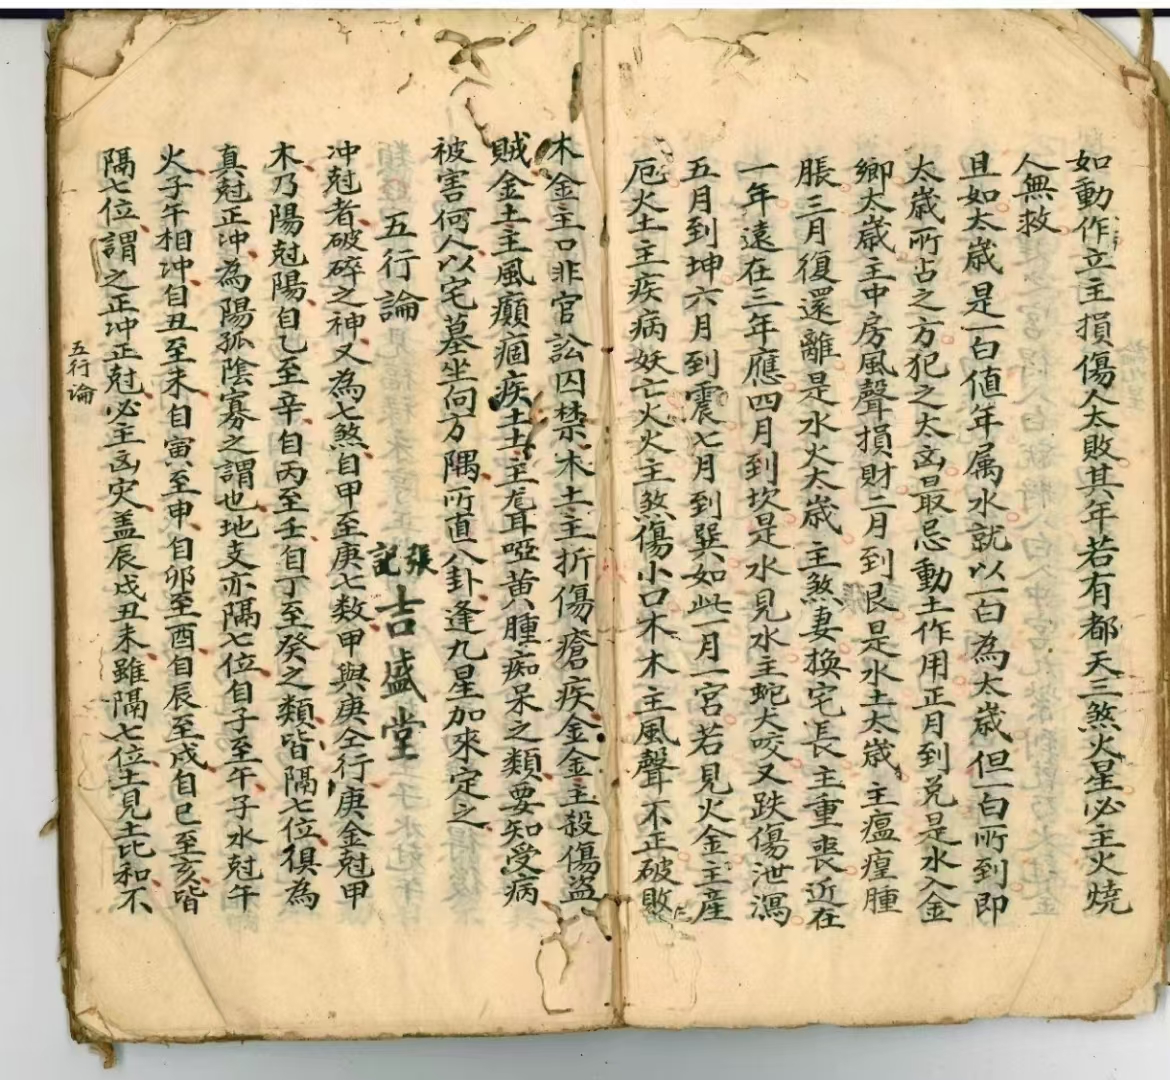 如動作立主損傷人太敗其年若有都天三煞火星必主火燒
人無救
且如太歲是一白值年属水就以一白為太歲但一白所到即
太歲所占之方犯之大凶最忌動土作用正月到兌是水入金
鄉太歲主中房風聲損財二月到艮是水土太歲主瘟瘽腫
脹三月復還離是水火太歲主煞妻換宅長主重喪近在
一年遠在三年應四月到坎是水見水主蛇犬咬又跌傷泄瀉
五月到坤六月到震七月到巽如此一月一宮若見火金主產
厄火土主疾病妖亡火火主煞傷小口木木主風聲不正破敗
木金主口非官訟囚禁木土主折傷瘡疾金金主殺傷盜
賊金土主風癲痼疾土土主尨耳啞黄腫痴呆之類要知受病
被害何人以宅墓坐向方隅所直八卦逢九星加來定之
五行論
張記吉盛堂
冲尅者破碎之神又為七煞自甲至庚七数甲與庚仝行庚金尅甲
木乃陽尅陽自乙至辛自丙至壬自丁至癸之類皆隔七位俱為
真尅正冲為陽孤陰寡之謂也地支亦隔七位自子至午子水尅午
火子午相冲自丑至未自寅至申自卯至酉自辰至戌自巳至亥皆
隔七位謂之正冲正尅必主凶灾盖辰戌丑未雖隔七位土見土比和不
五行論